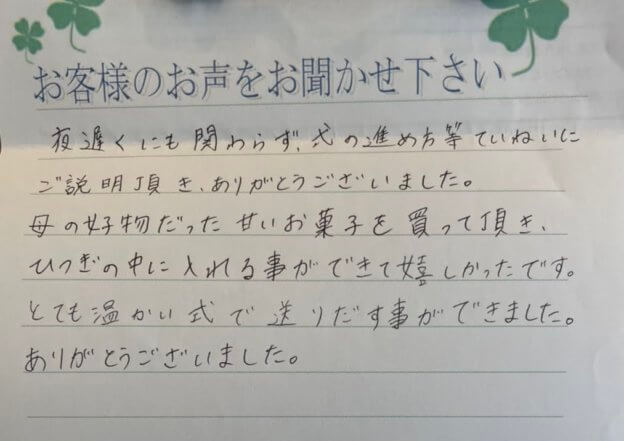 お客様のお声をお聞かせ下さい
夜遅くにも関わらず、式の進め方等ていねいに
ご説明頂き、ありがとうございました。
母の好物だった甘いお菓子を買って頂き、
ひつぎの中に入れる事ができて嬉しかったです。
とても温かい式で送りだす事ができました。
ありがとうございました。